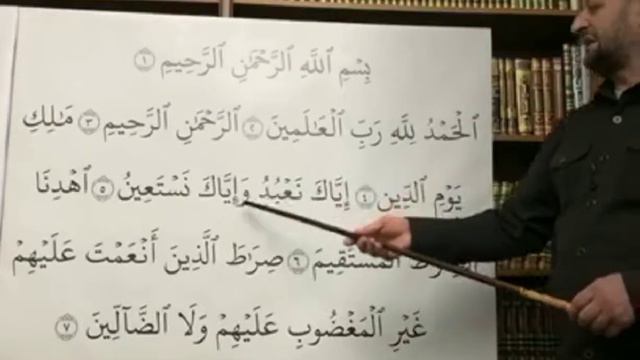 بِسْمِ ٱللَّهِ ٱلرَّحْمَٰنِ ٱلرَّحِيمِ ١
ٱلْحَمْدُ لِلَّهِ رَبِّ ٱلْعَٰلَمِينَ ٢ ٱلرَّحْمَٰنِ ٱلرَّحِيمِ ٣ مَٰلِكِ
يَوْمِ ٱلدِّينِ ٤ إِيَّاكَ نَعْبُدُ وَإِيَّاكَ نَسْتَعِينُ ٥ ٱهْدِنَا
ٱلْمُسْتَقِيمَ ٦ صِرَٰطَ ٱلَّذِينَ أَنْعَمْتَ عَلَيْهِمْ
غَيْرِ ٱلْمَغْضُوبِ عَلَيْهِمْ وَلَا ٱلضَّآلِّينَ ٧